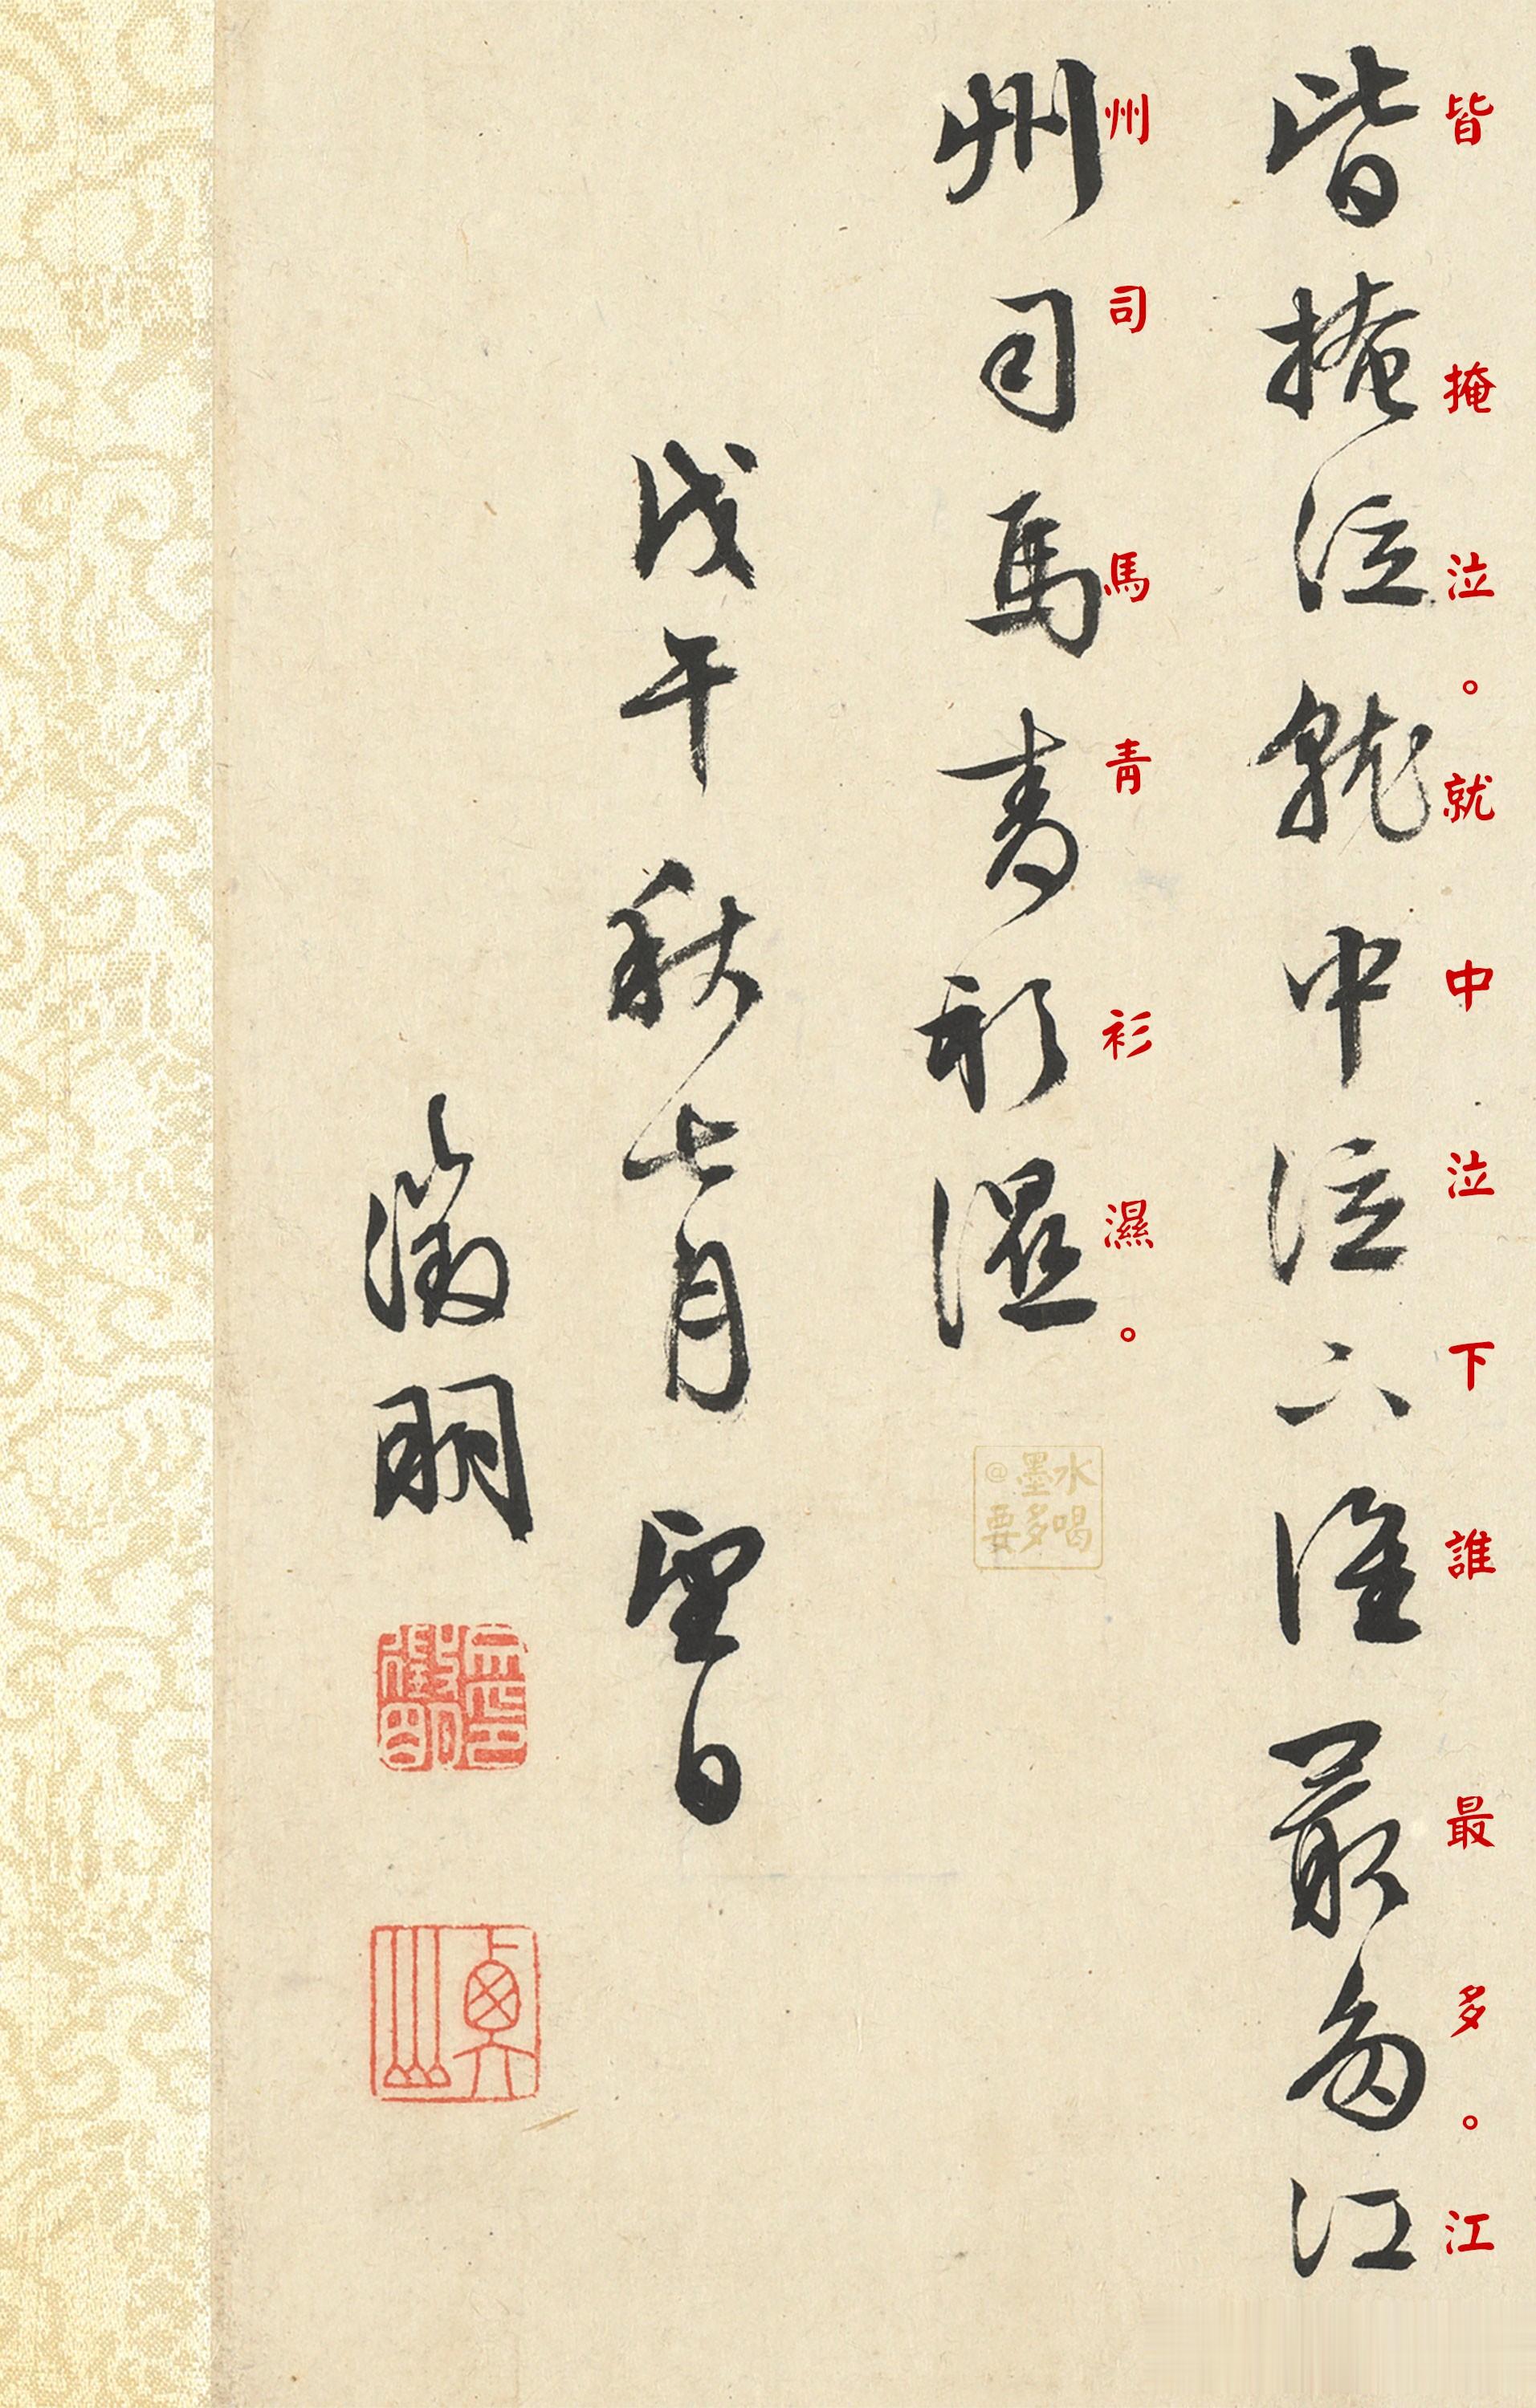 皆掩泣就中泣下誰最多江
皆掩泣。就中泣下誰最多。江
州司馬青衫濕
州司馬青衫濕。
戊午秋七月望日
徵明
@墨水
要多喝